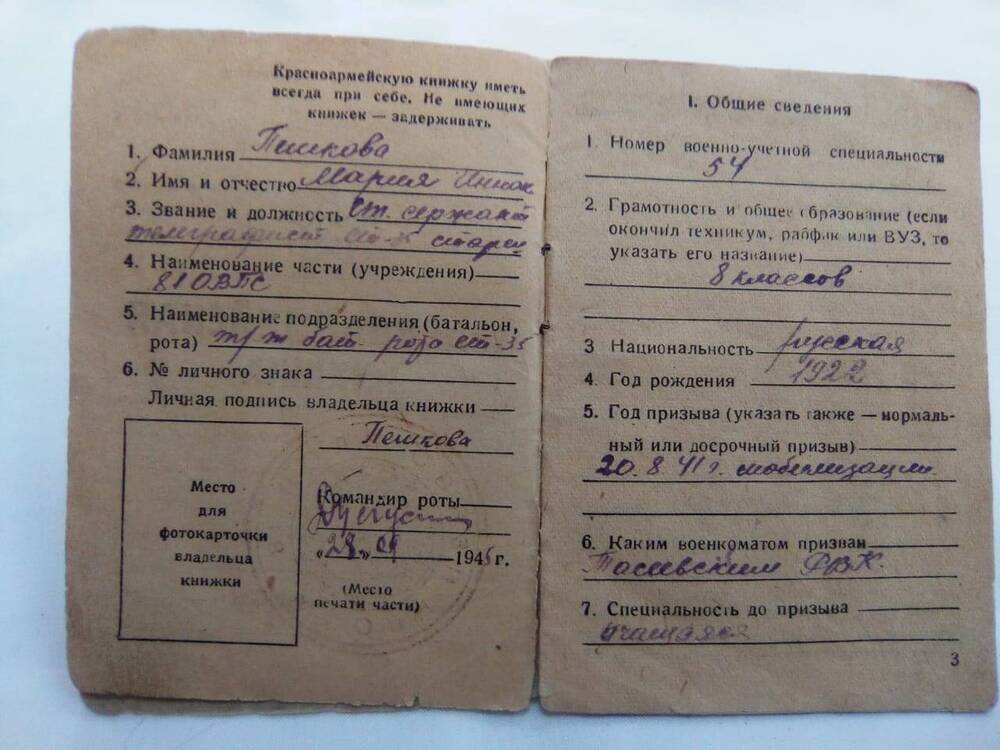 Красноармейскую книжку иметь
всегда при себе. Не имеющих
книжек — задерживать
1. Фамилия Пешкова
2. Имя и отчество Мария Иннок
3. Звание и должность Ст. сержант
телеграфист СТ-35
4. Наименование части (учреждения)
81 ОВПС
5. Наименование подразделения (батальон,
рота) бат. рота СТ-35
6. № личного знака
Личная подпись владельца книжки
Пешкова
Место
для
фотокарточки
владельца
книжки
Командир роты
„28“ 1945 г.
(Место
печати части)
I. Общие сведения
1 Номер военно-учетной специальности
54
2. Грамотность и общее образование (если
окончил техникум, рабфак или ВУЗ, то
указать его название)
8 классов
3 Национальность русская
4. Год рождения 1922
5. Год призыва (указать также — нормаль-
ный или досрочный призыв)
20.8.41 г. мобилизации
6. Каким военкоматом призван
Тасеевским РВК.
7. Специальность до призыва
учащаяся
3